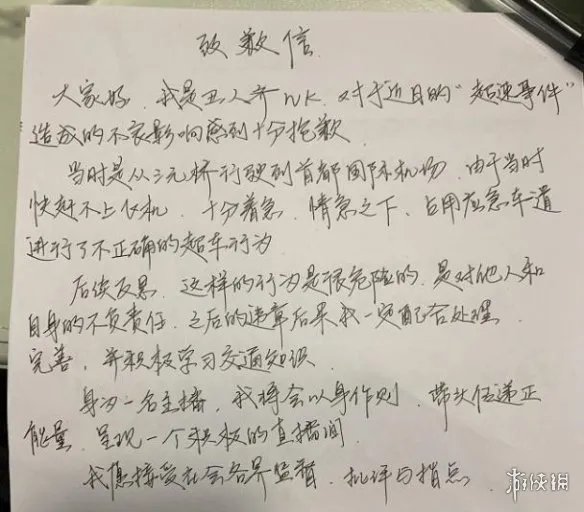 致歉信
大家好，我是丑人齐nk，对于近日的“超速事件”
造成的不良影响感到十分抱歉
当时是从三元桥行驶到首都国际机场，由于当时
快赶不上飞机，十分着急，情急之下，占用应急车道
进行了不正确的超车行为
后续反思，这样的行为是很危险的，是对他人和
自身的不负责任，之后的违章后果我一定配合处理，
完善，并积极学习交通知识
身为一名主播，我将会以身作则，带头传递正
能量，呈现一个积极的直播间，
我愿接受社会各界监督，批评与指点
游侠网